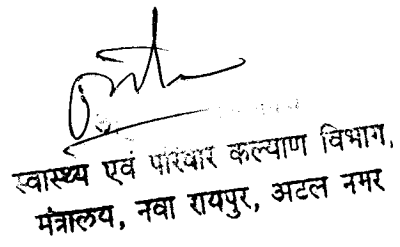 स्वास्थ्य एवं परिवार कल्याण विभाग,
मंत्रालय, नवा रायपुर, अटल नगर